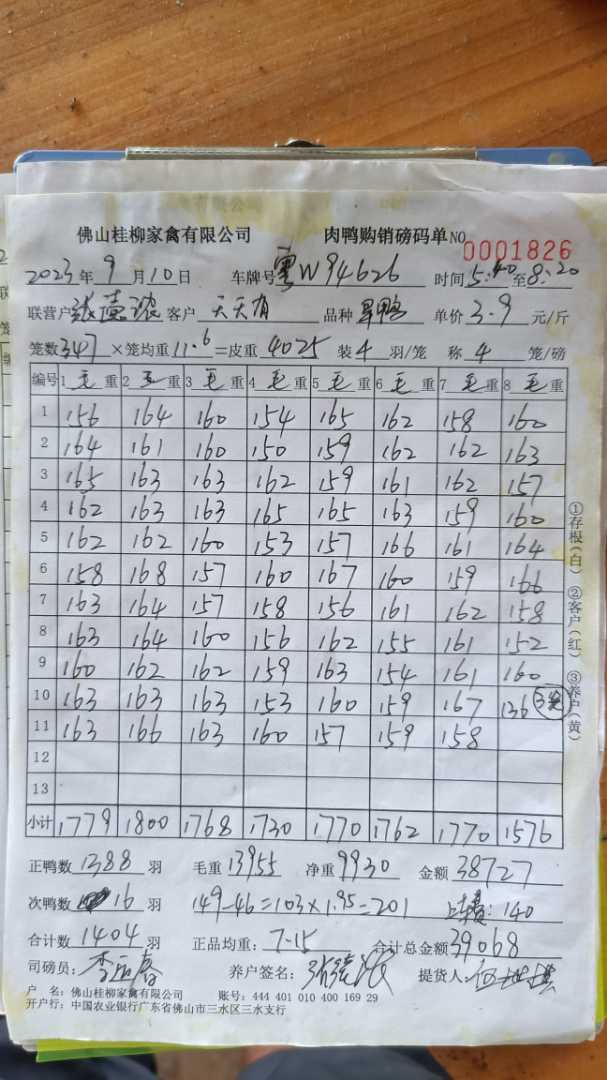 佛山桂柳家禽有限公司 肉鸭购销磅码单 NO 0001826
2023年9月10日 车牌号 粤W94626 时间5:40至8:20
联营户 客户 天天有 品种 旱鸭 单价 3.9 元/斤
笼数347×笼均重11.6=皮重 4025 装4 羽/笼 称 4 笼/磅
编号 1毛重 2毛重 3毛重 4毛重 5毛重 6毛重 7毛重 8毛重
1 156 164 160 154 165 162 158 160
2 164 161 160 150 159 162 162 163
3 165 163 163 162 159 161 162 157
4 162 163 163 165 165 163 159 160
5 162 162 160 153 157 166 161 164
6 158 168 157 160 167 160 159 166
7 163 164 157 158 156 161 162 158
8 163 164 160 156 162 155 161 152
9 160 162 162 159 163 154 161 160
10 163 163 163 153 160 159 167 136 3笼
11 163 166 163 160 157 159 158
12
13
小计 1779 1800 1768 1730 1770 1762 1770 1576
①存根(白) ②客户(红) ③养户(黄)
正鸭数 1388 羽 毛重 13955 净重 9930 金额 38727
次鸭数 16 羽 149-46=103×1.95=201 上车费:140
合计数 1404 羽 正品均重: 7.15 合计总金额 39068
司磅员: 养户签名: 提货人:
户 名: 佛山桂柳家禽有限公司 账号: 444 401 010 400 169 29
开户行: 中国农业银行广东省佛山市三水区三水支行